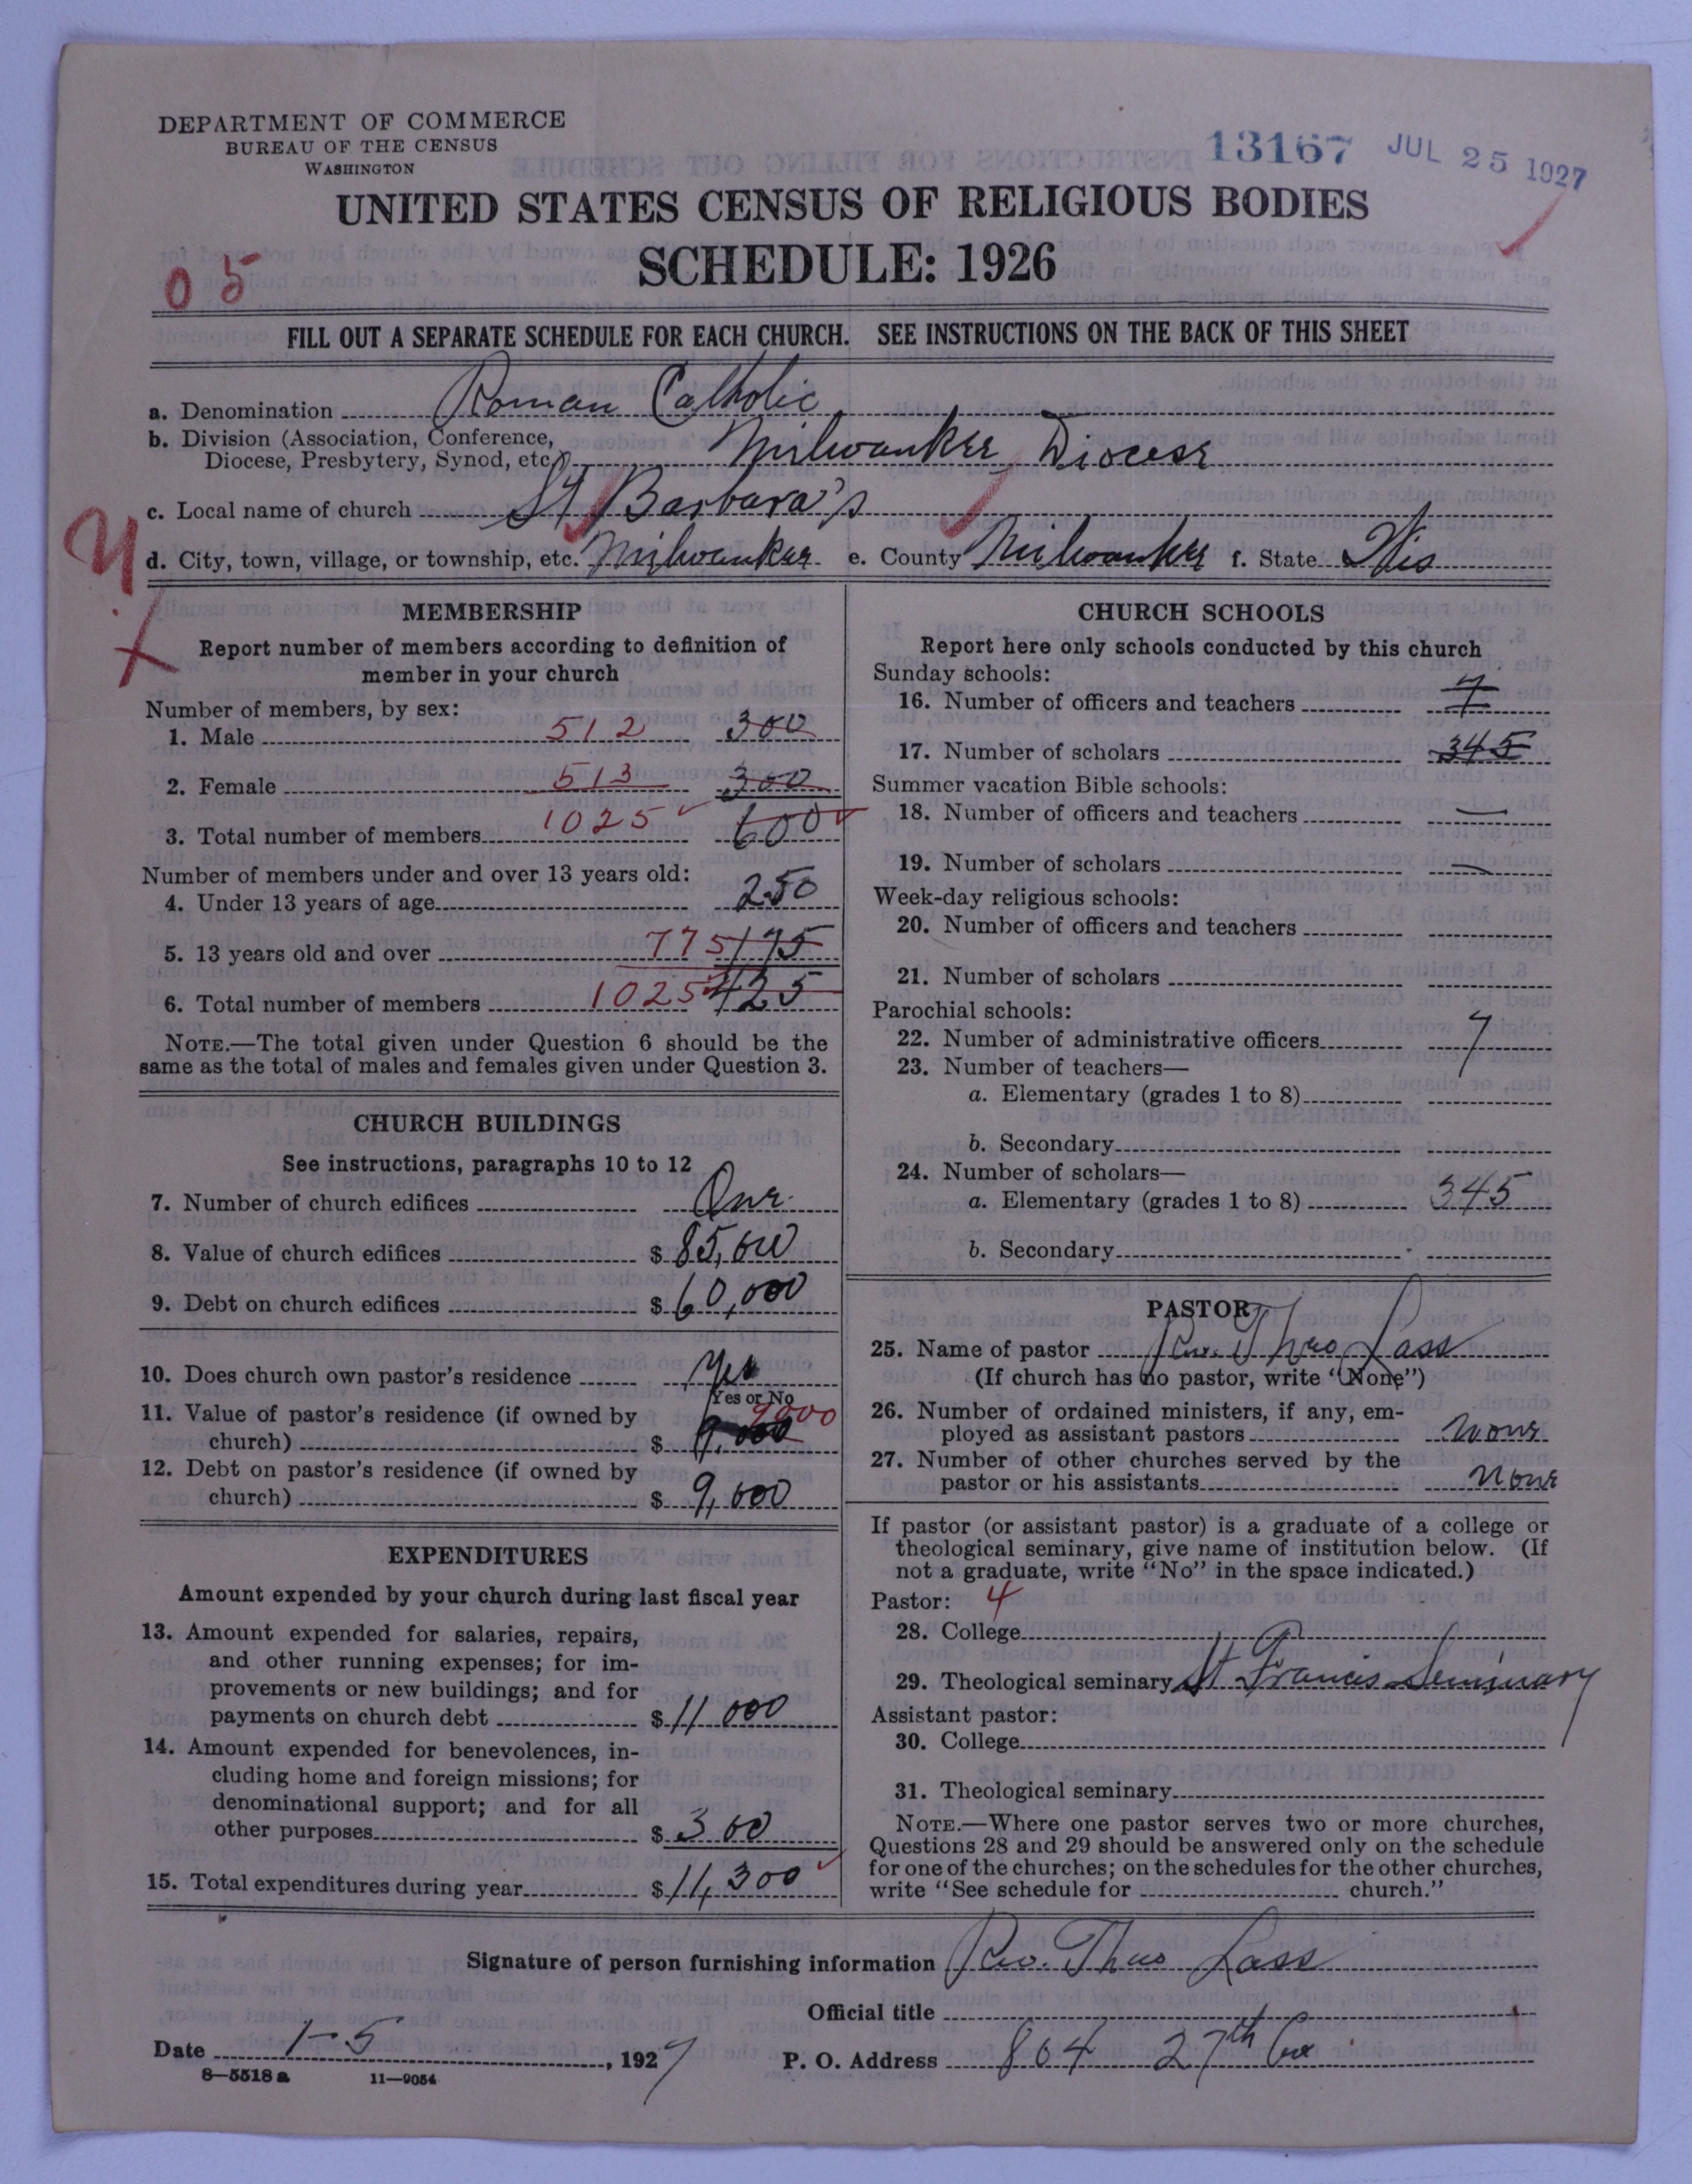 DEPARTMENT OF COMMERCE
BUREAU OF THE CENSUS
WASHINGTON
13167 JUL 25 1927
UNITED STATES CENSUS OF RELIGIOUS BODIES
SCHEDULE: 1926
05
FILL OUT A SEPARATE SCHEDULE FOR EACH CHURCH. SEE INSTRUCTIONS ON THE BACK OF THIS SHEET
a. Denomination Roman Catholic
b. Division (Association, Conference,
Diocese, Presbytery, Synod, etc.) Milwaukee Diocese
c. Local name of church St Barbara's
d. City, town, village, or township, etc. Milwaukee e. County Milwaukee f. State Wis
MEMBERSHIP
Report number of members according to definition of
member in your church
Number of members, by sex:
1. Male 512 300
2. Female 513 300
3. Total number of members 1025 600
Number of members under and over 13 years old:
4. Under 13 years of age 250
5. 13 years old and over 775 175
6. Total number of members 1025 425
NOTE.—The total given under Question 6 should be the
same as the total of males and females given under Question 3.
CHURCH BUILDINGS
See instructions, paragraphs 10 to 12
7. Number of church edifices One
8. Value of church edifices $ 85,000
9. Debt on church edifices $ 60,000
10. Does church own pastor's residence Yes
Yes or No
11. Value of pastor's residence (if owned by 9000
church) $ 9,000
12. Debt on pastor's residence (if owned by
church) $ 9,000
EXPENDITURES
Amount expended by your church during last fiscal year
13. Amount expended for salaries, repairs,
and other running expenses; for im-
provements or new buildings; and for
payments on church debt $ 11 000
14. Amount expended for benevolences, in-
cluding home and foreign missions; for
denominational support; and for all
other purposes $ 300
15. Total expenditures during year $ 11,300
CHURCH SCHOOLS
Report here only schools conducted by this church
Sunday schools:
16. Number of officers and teachers 7
17. Number of scholars 345
Summer vacation Bible schools:
18. Number of officers and teachers —
19. Number of scholars —
Week-day religious schools:
20. Number of officers and teachers
21. Number of scholars
Parochial schools:
22. Number of administrative officers 7
23. Number of teachers—
a. Elementary (grades 1 to 8)
b. Secondary
24. Number of scholars—
a. Elementary (grades 1 to 8) 345
b. Secondary
PASTOR
25. Name of pastor Rev. Theo Lass
(If church has no pastor, write "None")
26. Number of ordained ministers, if any, em-
ployed as assistant pastors None
27. Number of other churches served by the
pastor or his assistants None
If pastor (or assistant pastor) is a graduate of a college or
theological seminary, give name of institution below. (If
not a graduate, write "No" in the space indicated.)
Pastor: 4
28. College
29. Theological seminary St Francis Seminary
Assistant pastor:
30. College
31. Theological seminary
NOTE.—Where one pastor serves two or more churches,
Questions 28 and 29 should be answered only on the schedule
for one of the churches; on the schedules for the other churches,
write "See schedule for church."
Signature of person furnishing information Rev. Theo Lass
Official title
Date 1-5, 1927 P. O. Address 804 27th Ave
8—5518a 11—9054